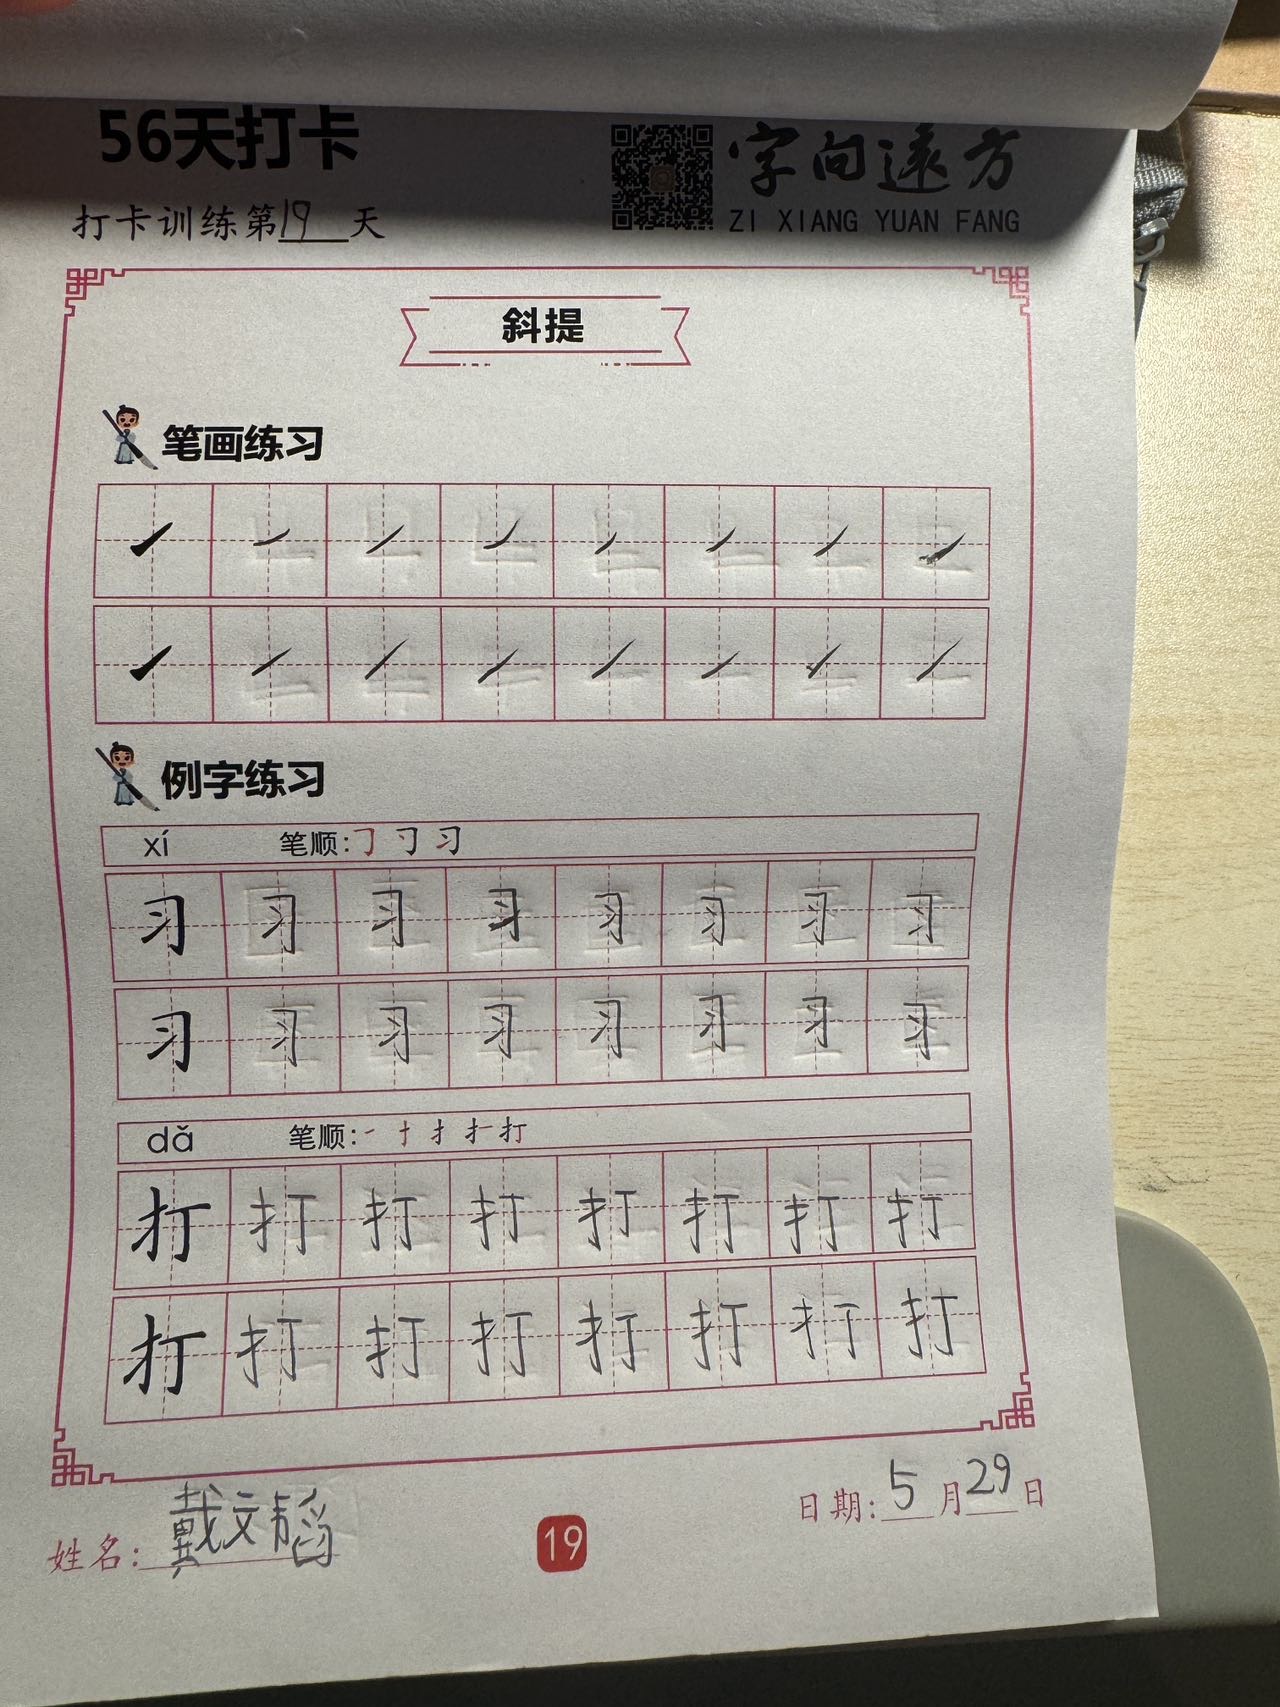 56天打卡
字向遠方
打卡训练第19天
ZI XIANG YUAN FANG
斜提
笔画练习
例字练习
xí 笔顺:
习 习 习 习 习 习 习 习
习 习 习 习 习 习 习 习
dǎ 笔顺:
打 打 打 打 打 打 打 打
打 打 打 打 打 打 打 打
姓名:戴文韬
19
日期:5月29日